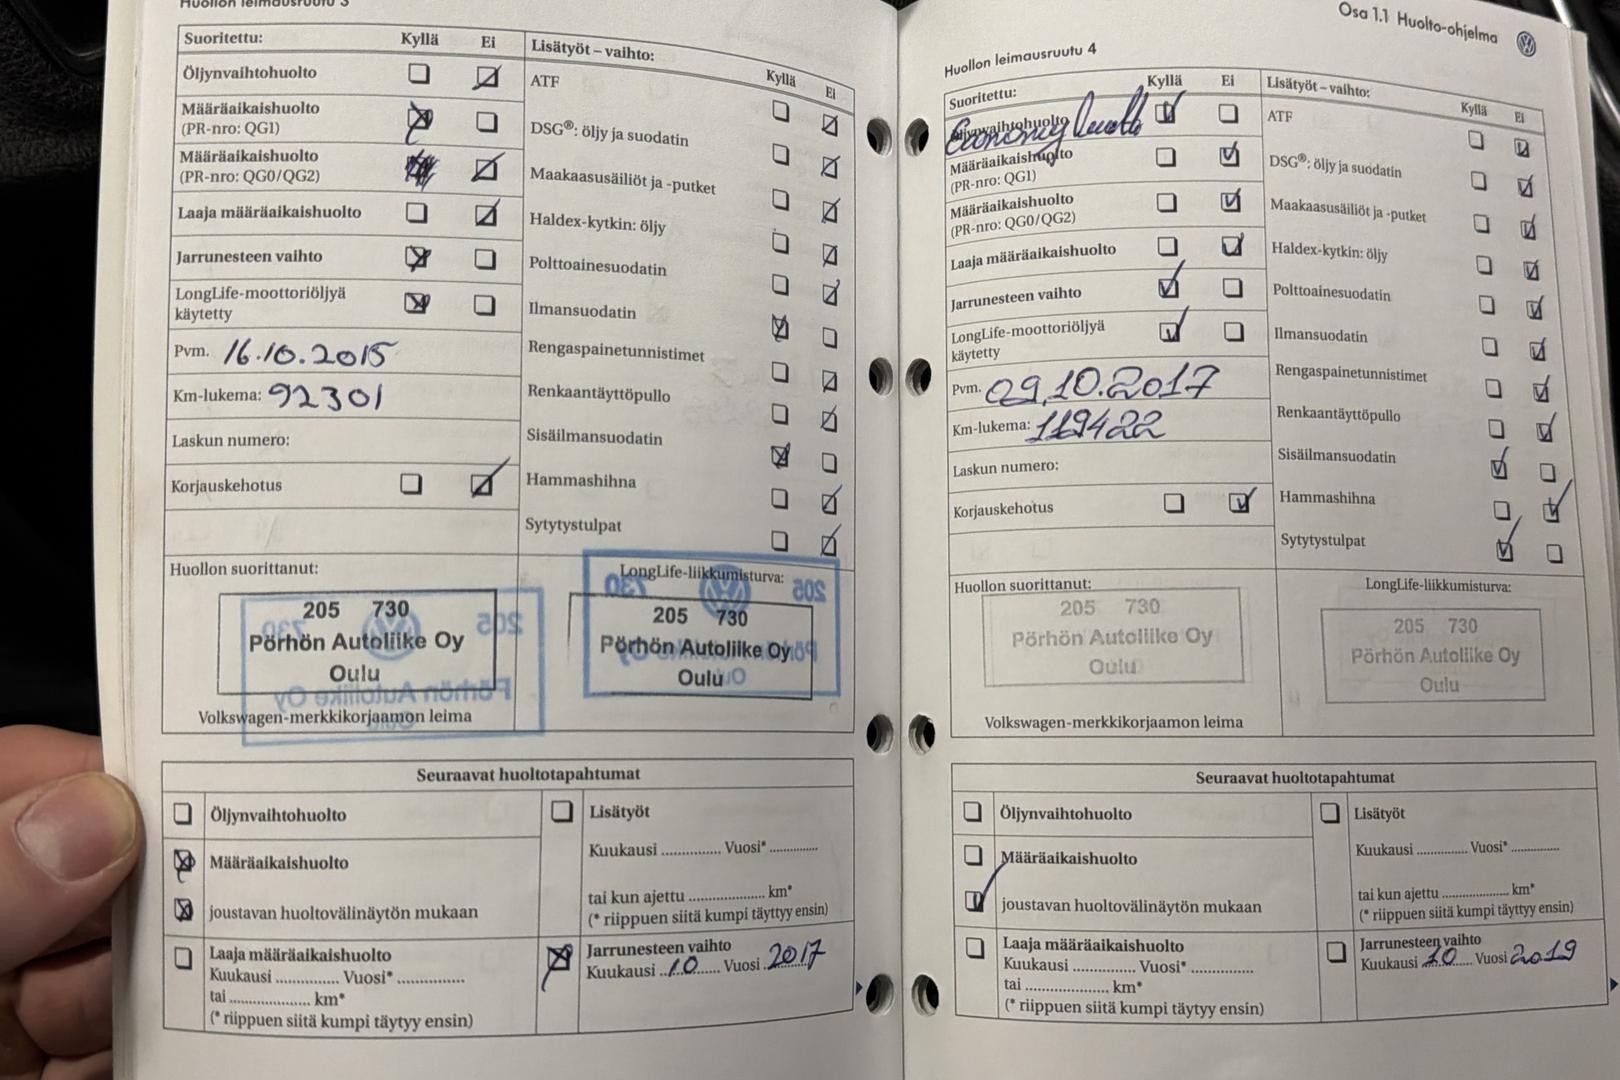 Huollon leimausruutu 3
Suoritettu: Kyllä Ei
Öljynvaihtohuolto
Määräaikaishuolto
(PR-nro: QG1)
Määräaikaishuolto
(PR-nro: QG0/QG2)
Laaja määräaikaishuolto
Jarrunesteen vaihto
LongLife-moottoriöljyä
käytetty
Pvm. 16.10.2015
Km-lukema: 92301
Laskun numero:
Korjauskehotus
Lisätyöt – vaihto:
Kyllä Ei
ATF
DSG®: öljy ja suodatin
Maakaasusäiliöt ja -putket
Haldex-kytkin: öljy
Polttoainesuodatin
Ilmansuodatin
Rengaspainetunnistimet
Renkaantäyttöpullo
Sisäilmansuodatin
Hammashihna
Sytytystulpat
Huollon suorittanut:
205 730
Pörhön Autoliike Oy
Oulu
Volkswagen-merkkikorjaamon leima
LongLife-liikkumisturva:
205 730
Pörhön Autoliike Oy
Oulu
Seuraavat huoltotapahtumat
Öljynvaihtohuolto
Määräaikaishuolto
joustavan huoltovälinäytön mukaan
Laaja määräaikaishuolto
Kuukausi ............... Vuosi* ...............
tai .................... km*
(* riippuen siitä kumpi täytyy ensin)
Lisätyöt
Kuukausi .............. Vuosi* ............
tai kun ajettu .................. km*
(* riippuen siitä kumpi täyttyy ensin)
Jarrunesteen vaihto
Kuukausi 10 Vuosi 2017
Osa 1.1 Huolto-ohjelma
Huollon leimausruutu 4
Suoritettu: Kyllä Ei
Öljynvaihtohuolto
Economy huolto
Määräaikaishuolto
(PR-nro: QG1)
Määräaikaishuolto
(PR-nro: QG0/QG2)
Laaja määräaikaishuolto
Jarrunesteen vaihto
LongLife-moottoriöljyä
käytetty
Pvm. 09.10.2017
Km-lukema: 119422
Laskun numero:
Korjauskehotus
Lisätyöt – vaihto:
Kyllä Ei
ATF
DSG®: öljy ja suodatin
Maakaasusäiliöt ja -putket
Haldex-kytkin: öljy
Polttoainesuodatin
Ilmansuodatin
Rengaspainetunnistimet
Renkaantäyttöpullo
Sisäilmansuodatin
Hammashihna
Sytytystulpat
Huollon suorittanut:
205 730
Pörhön Autoliike Oy
Oulu
Volkswagen-merkkikorjaamon leima
LongLife-liikkumisturva:
205 730
Pörhön Autoliike Oy
Oulu
Seuraavat huoltotapahtumat
Öljynvaihtohuolto
Määräaikaishuolto
joustavan huoltovälinäytön mukaan
Laaja määräaikaishuolto
Kuukausi ............... Vuosi* ...............
tai .................... km*
(* riippuen siitä kumpi täytyy ensin)
Lisätyöt
Kuukausi ............ Vuosi* ............
tai kun ajettu ................ km*
(* riippuen siitä kumpi täyttyy ensin)
Jarrunesteen vaihto
Kuukausi 10 Vuosi 2019